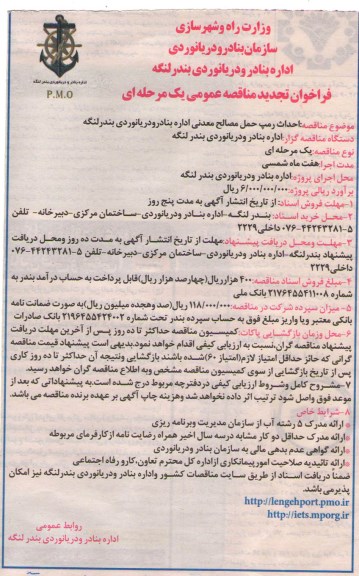 وزارت راه وشهرسازی
سازمان بنادر ودریانوردی
اداره بنادر ودریانوردی بندر لنگه
اداره بنادر و دریانوردی بندر لنگه
P.M.O
فراخوان تجدید مناقصه عمومی یک مرحله ای
موضوع مناقصه:احداث رمپ حمل مصالح معدنی اداره بنادر ودریانوردی بندر لنگه
دستگاه مناقصه گزار:اداره بنادر ودریانوردی بندر لنگه
نوع مناقصه:یک مرحله ای
مدت اجرا:هفت ماه شمسی
محل اجرای پروژه:اداره بنادر ودریانوردی بندر لنگه
برآورد ریالی پروژه:۶/۰۰۰/۰۰۰/۰۰۰ ریال
۱-مهلت فروش اسناد:از تاریخ انتشار آگهی به مدت پنج روز
۲-محل خرید اسناد: بندر لنگه-اداره بنادر ودریانوردی-ساختمان مرکزی-دبیرخانه- تلفن
۵-۰۷۶-۴۴۲۴۳۲۸۱ داخلی ۲۲۲۹
۳-مهلت ومحل دریافت پیشنهاد:مهلت از تاریخ انتشار آگهی به مدت ده روز ومحل دریافت
پیشنهاد بندر لنگه-اداره بنادر ودریانوردی-ساختمان مرکزی-دبیرخانه-تلفن ۵-۰۷۶-۴۴۲۴۳۲۸۱
داخلی ۲۲۲۹
۴-مبلغ فروش اسناد مناقصه:۴۰۰هزارریال(چهارصد هزار ریال)قابل پرداخت به حساب درآمد بندر به
شماره ۲۱۷۶۴۵۵۴۱۱۰۰۸ بانک ملی
۵-میزان سپرده شرکت در مناقصه:۱۱۸/۰۰۰/۰۰۰ ریال(صد وهجده میلیون ریال)به صورت ضمانت نامه
بانکی معتبر ویا واریز مبلغ فوق به حساب سپرده بندر تحت شماره ۲۱۹۶۴۵۵۴۲۴۰۰۲ بانک صادرات
۶-محل وزمان بازگشایی پاکات:کمیسیون مناقصه حداکثر تا ده روز پس از آخرین مهلت دریافت
پیشنهاد مناقصه گران،نسبت به ارزیابی کیفی اقدام خواهد نمود.بدیهی است پیشنهاد قیمت مناقصه
گرانی که حائز حداقل امتیاز لازم(امتیاز۶۰)شده باشند بازگشایی ونتیجه آن حداکثر تا ده روز کاری
پس از تاریخ بازگشایی از سوی کمیسیون مناقصه مشخص وبه اطلاع مناقصه گران خواهد رسید.
۷-مشروح کامل وشروط ارزیابی کیفی در دفترچه مربوط درج شده است.به پیشنهاداتی که بعد از
موعد فوق واصل شود ترتیب اثر داده نخواهد شد وهزینه چاپ آگهی بر عهده برنده مناقصه می باشد.
۸-شرایط خاص
* ارائه مدرک ۵ رشته آب از سازمان مدیریت وبرنامه ریزی
* ارائه مدرک حداقل دو کار مشابه درسه سال اخیر همراه رضایت نامه از کارفرمای مربوطه
* ارائه گواهی عدم بدهی مالی به سازمان بنادر ودریانوردی
* ارائه تائیدیه صلاحیت امور پیمانکاری از اداره کل محترم تعاون،کار و رفاه اجتماعی
ضمناً دریافت اسناد از طریق سایت مناقصات کشور واداره بنادر ودریانوردی بندر لنگه نیز امکان
پذیر می باشد.
http://lengehport.pmo.ir
http://iets.mporg.ir
روابط عمومی
اداره بنادر ودریانوردی بندر لنگه